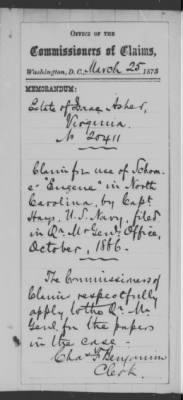 OFFICE OF THE
Commissioners of Claims,
Washington, D. C. March 25 1875
MEMORANDUM:
Estate of Isaac Asher,
Virginia.
No 20411
Claim for use of Schoon-
er "Eugene" in North
Carolina, by Capt.
Hays. U.S. Navy, filed
in Qr. Mr. Genl's Office,
October, 1866.
The Commissioners of
Claims respectfully
apply to the Qr. Mr.
Genl. for the papers
in the case.
Chas. F. Benjamin
Clerk.